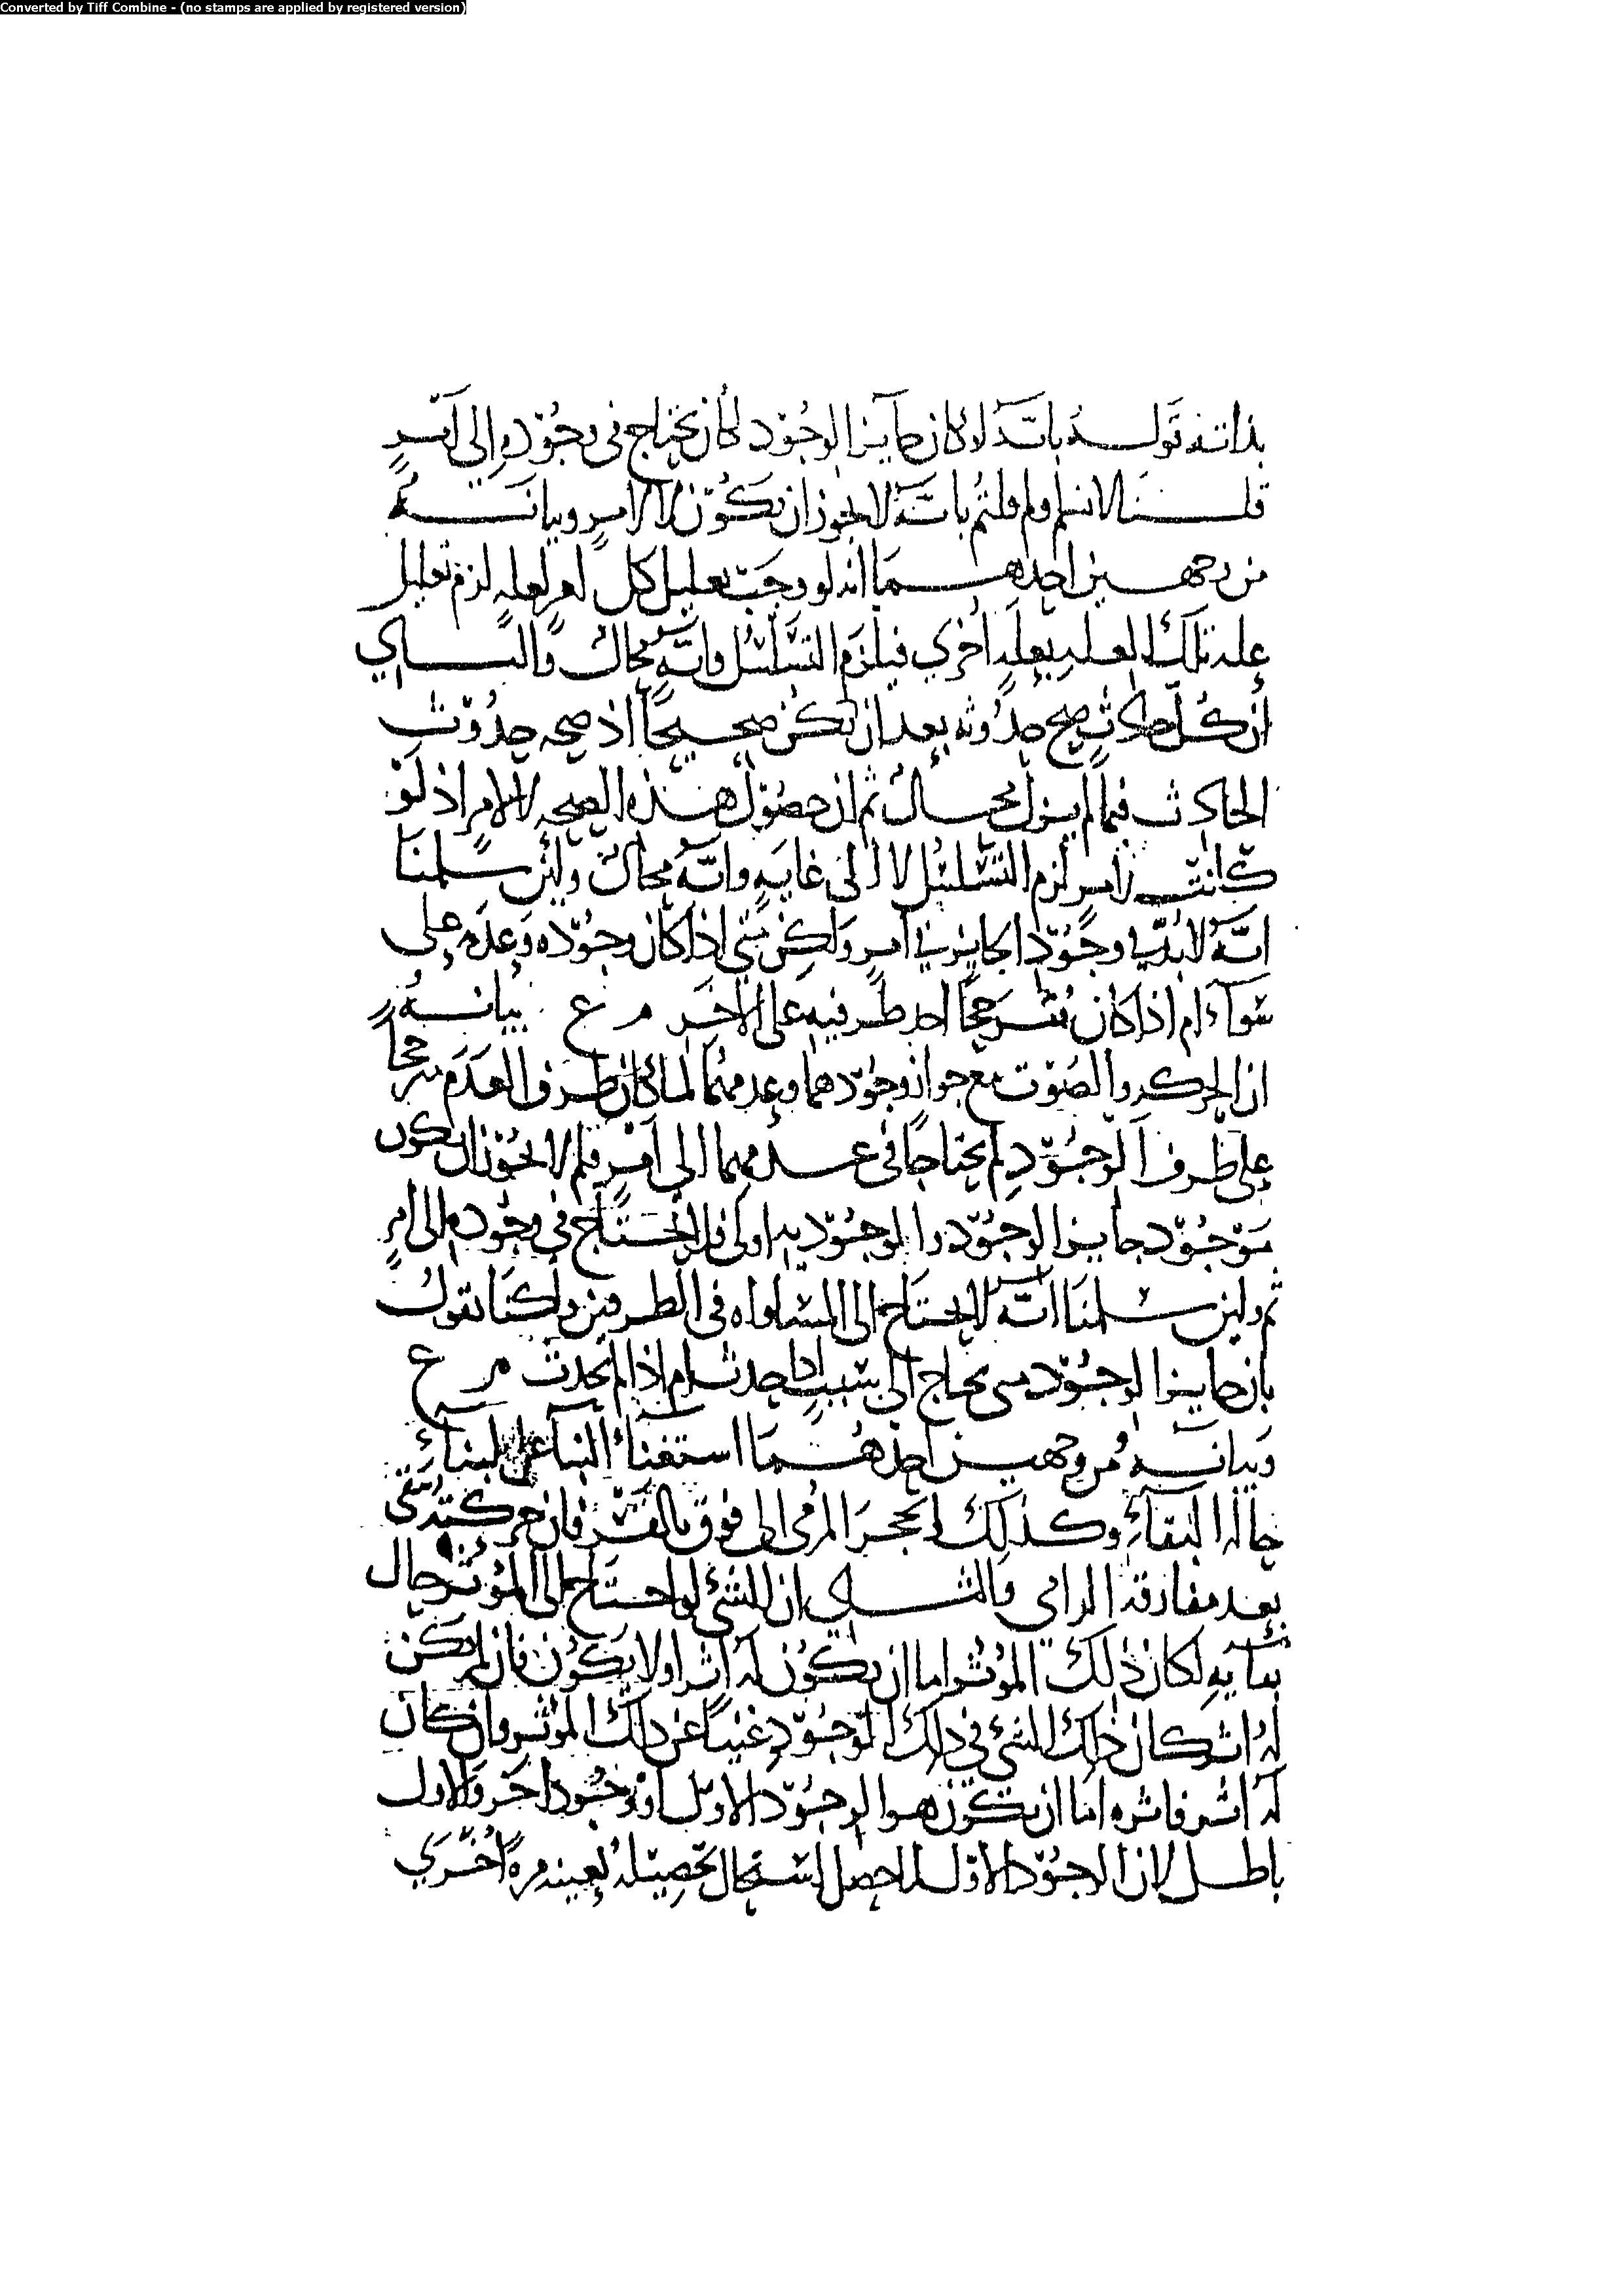 Converted by Tiff Combine - (no stamps are applied by registered version)
بذاته قوله بانه لو كان جايز الوجود لكان يحتاج في وجوده إلى أمرٍ
قلنا لا نسلم ولم قلتم بانه لا يجوز ان يكون لا لامرٍ وبيانه
من وجهين احدهما انه لو وجب تعليل كل امر لعلةٍ لزم تعليل
علة تلك العلة بعلةٍ أخري فيلزم التسلسل وانه محال والثاني
أن كل حادثٍ صح حدوثه بعد ان لم يكن صحيحاً اذ صحة حدوث
الحادث فيما لم يزل محال ثم ان حصول هذه الصحة لا لامرٍ اذ لو
كانت لامرٍ لزم التسلسل لا الى غاية وانه محال ولئن سلمنا
انه لا بد في وجود الجايز من امرٍ ولكن متى اذا كان وجوده وعدمه على
سوآء ام اذا كان مترجحا احد طرفيه على الآخر م ع بيانه
ان الحركة والصوت مع جواز وجودهما وعدمهما لما كان طرف العدم مترجحا
على طرف الوجود لم يحتاجا في عدمهما الى أمرٍ فلم لا يجوز ان يكون
موجود جايز الوجود والوجود به اولى فلا يحتاج في وجوده الى امرٍ
ثم ولئن سلمنا انه لا يحتاج الى المساواه في الطرفين ولكنا نقول
بان جايز الوجود متى يحتاج الى سببٍ اذا حدث ام اذا لم يحدث م ع
وبيانه من وجهين احدهما استغناء البنآ عن البناءِ
حالة البقاءِ وكذلك الحجر المرمي الى فوق بالقسر فان حركته تبقى
بعد مفارقة الرامي والثاني ان الشيء لو احتاج الى المؤثر حال
بقايه لكان ذلك المؤثر اما ان يكون له اثر او لا يكون فان لم يكن
له اثر كان ذلك الشيء في ذلك الوجود غنياً عن ذلك المؤثر وان كان
له اثر فاثره اما ان يكون هو الوجود الاول او وجود اخر والاول
باطل لان الوجود الاول لما حصل استحال تحصيله بعينه مرةً أخرَي